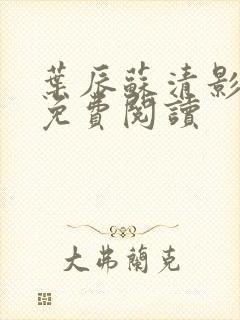 葉辰蘇清影
免費閱讀
大弗蘭克